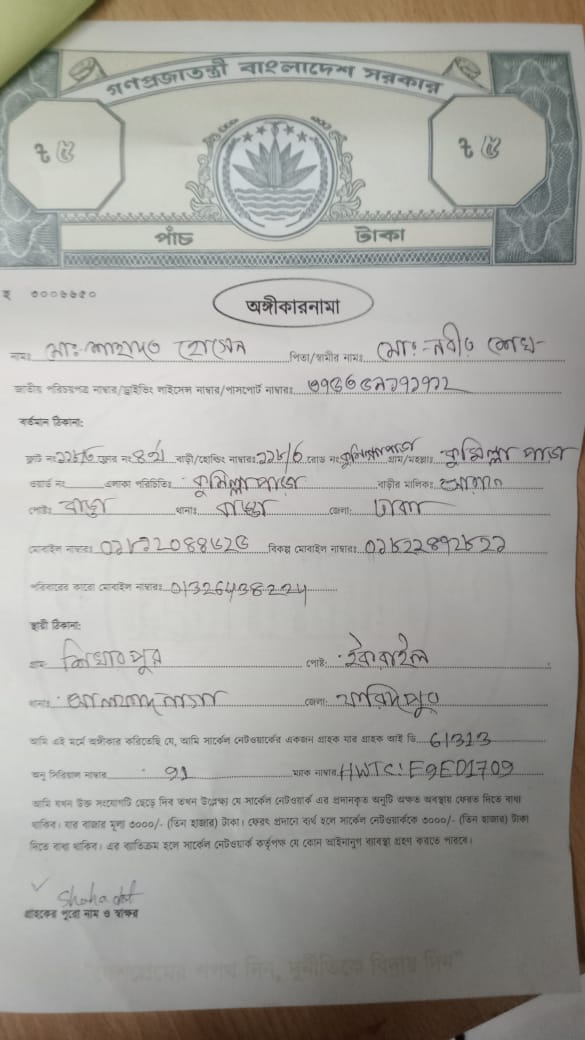 গণপ্রজাতন্ত্রী বাংলাদেশ সরকার
৳ ৫ ৳ ৫
পাঁচ টাকা
হ ৩০০৬৬৫০
অঙ্গীকারনামা
নামঃ মোঃ শাহাদত হোসেন পিতা/স্বামীর নামঃ মোঃ নবীও শেখ
জাতীয় পরিচয়পত্র নাম্বার/ড্রাইভিং লাইসেন্স নাম্বার/পাসপোর্ট নাম্বারঃ
বর্তমান ঠিকানা:
ফ্লাট নং ফ্লোর নং ৪র্থ বাড়ী/হোল্ডিং নাম্বারঃ রোড নং কুমিল্লাপাড়া গ্রাম/মহল্লাঃ কুমিল্লা পাড়া
ওয়ার্ড নং এলাকা পরিচিতিঃ কুমিল্লাপাড়া বাড়ীর মালিকঃ
পোষ্টঃ বাড্ডা থানাঃ বাড্ডা জেলা: ঢাকা
মোবাইল নাম্বারঃ বিকল্প মোবাইল নাম্বারঃ
পরিবারের কারো মোবাইল নাম্বারঃ 01326438224
স্থায়ী ঠিকানা:
গ্রাম: পোষ্ট:
থানাঃ আলফাডাঙ্গা জেলা: ফরিদপুর
আমি এই মর্মে অঙ্গীকার করিতেছি যে, আমি সার্কেল নেটওয়ার্কের একজন গ্রাহক যার গ্রাহক আই ডি 61313
অনু সিরিয়াল নাম্বার 91 ম্যাক নাম্বার HWTC: E9ED1709
আমি যখন উক্ত সংযোগটি ছেড়ে দিব তখন উল্লেক্ষ্য যে সার্কেল নেটওয়ার্ক এর প্রদানকৃত অনুটি অক্ষত অবস্থায় ফেরত দিতে বাধ্য
থাকিব। যার বাজার মূল্য ৩০০০/- (তিন হাজার) টাকা। ফেরৎ প্রদানে ব্যর্থ হলে সার্কেল নেটওয়ার্ককে ৩০০০/- (তিন হাজার) টাকা
দিতে বাধ্য থাকিব। এর ব্যতিক্রম হলে সার্কেল নেটওয়ার্ক কর্তৃপক্ষ যে কোন আইনানুগ ব্যবস্থা গ্রহণ করতে পারবে।
Shahadat
গ্রাহকের পুরো নাম ও স্বাক্ষর
"দেশপ্রেমের শপথ নিন, দুর্নীতিকে বিদায় দিন"